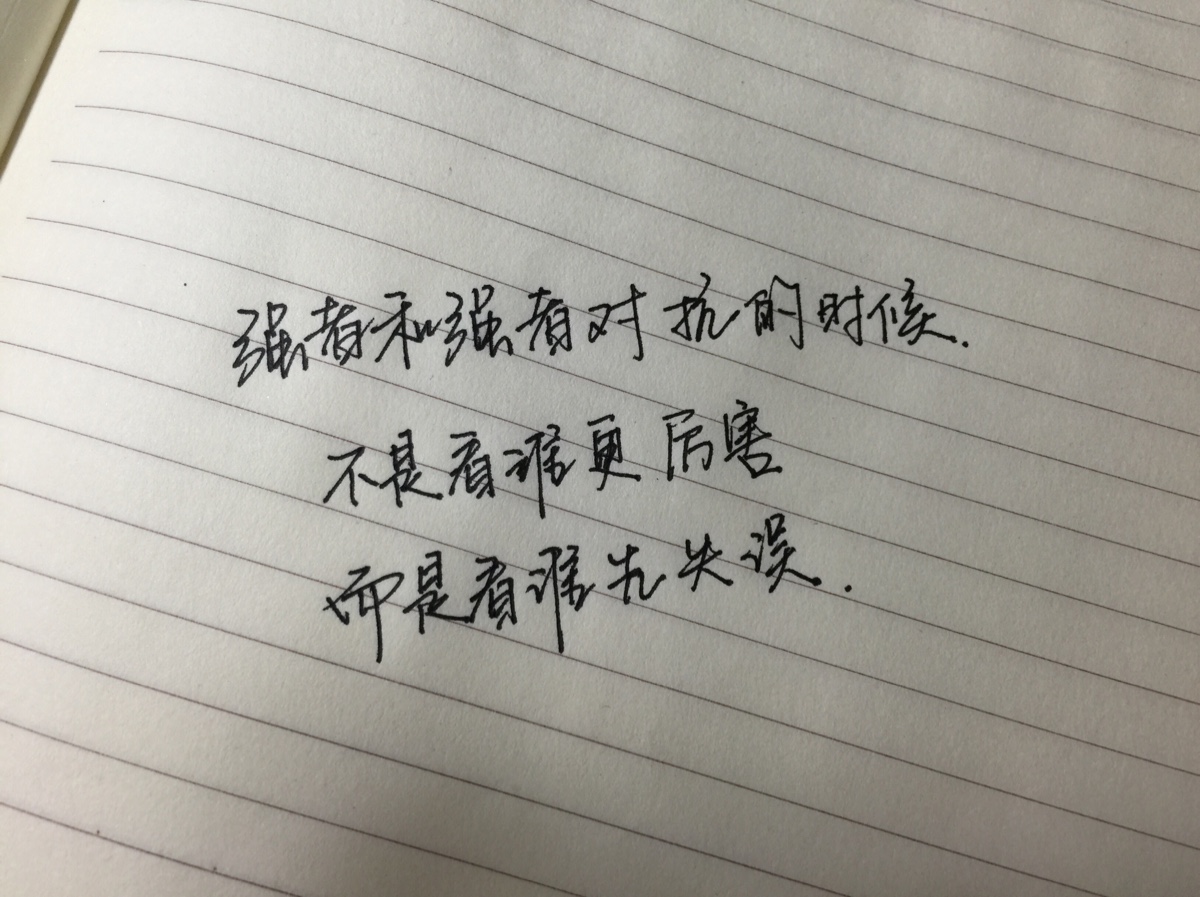 强者和强者对抗的时候.
不是看谁更厉害
而是看谁先失误..